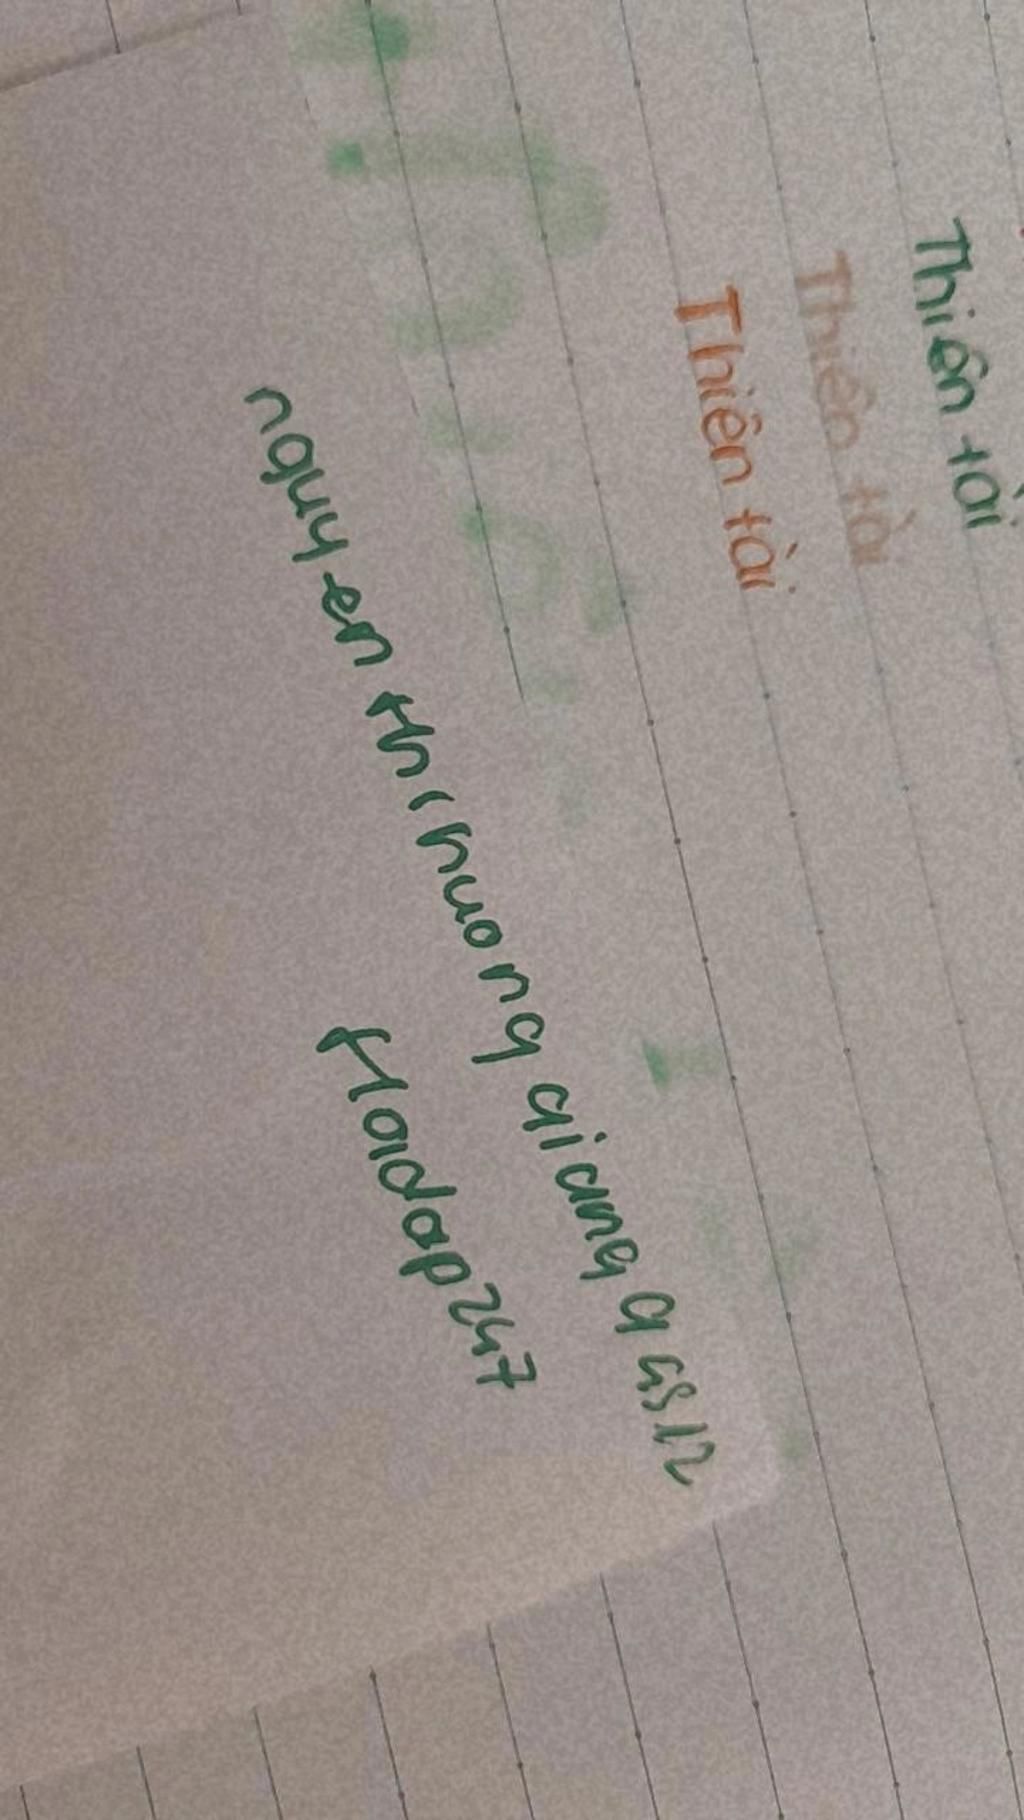 Thiên tài
Thiên tài
Thiên tài
nguyen thi huong giang a gs12
Hoidap247